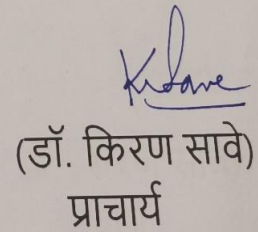 KSave
(डॉ. किरण सावे)
प्राचार्य